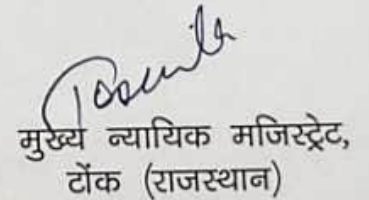 मुख्य न्यायिक मजिस्ट्रेट,
टोंक (राजस्थान)